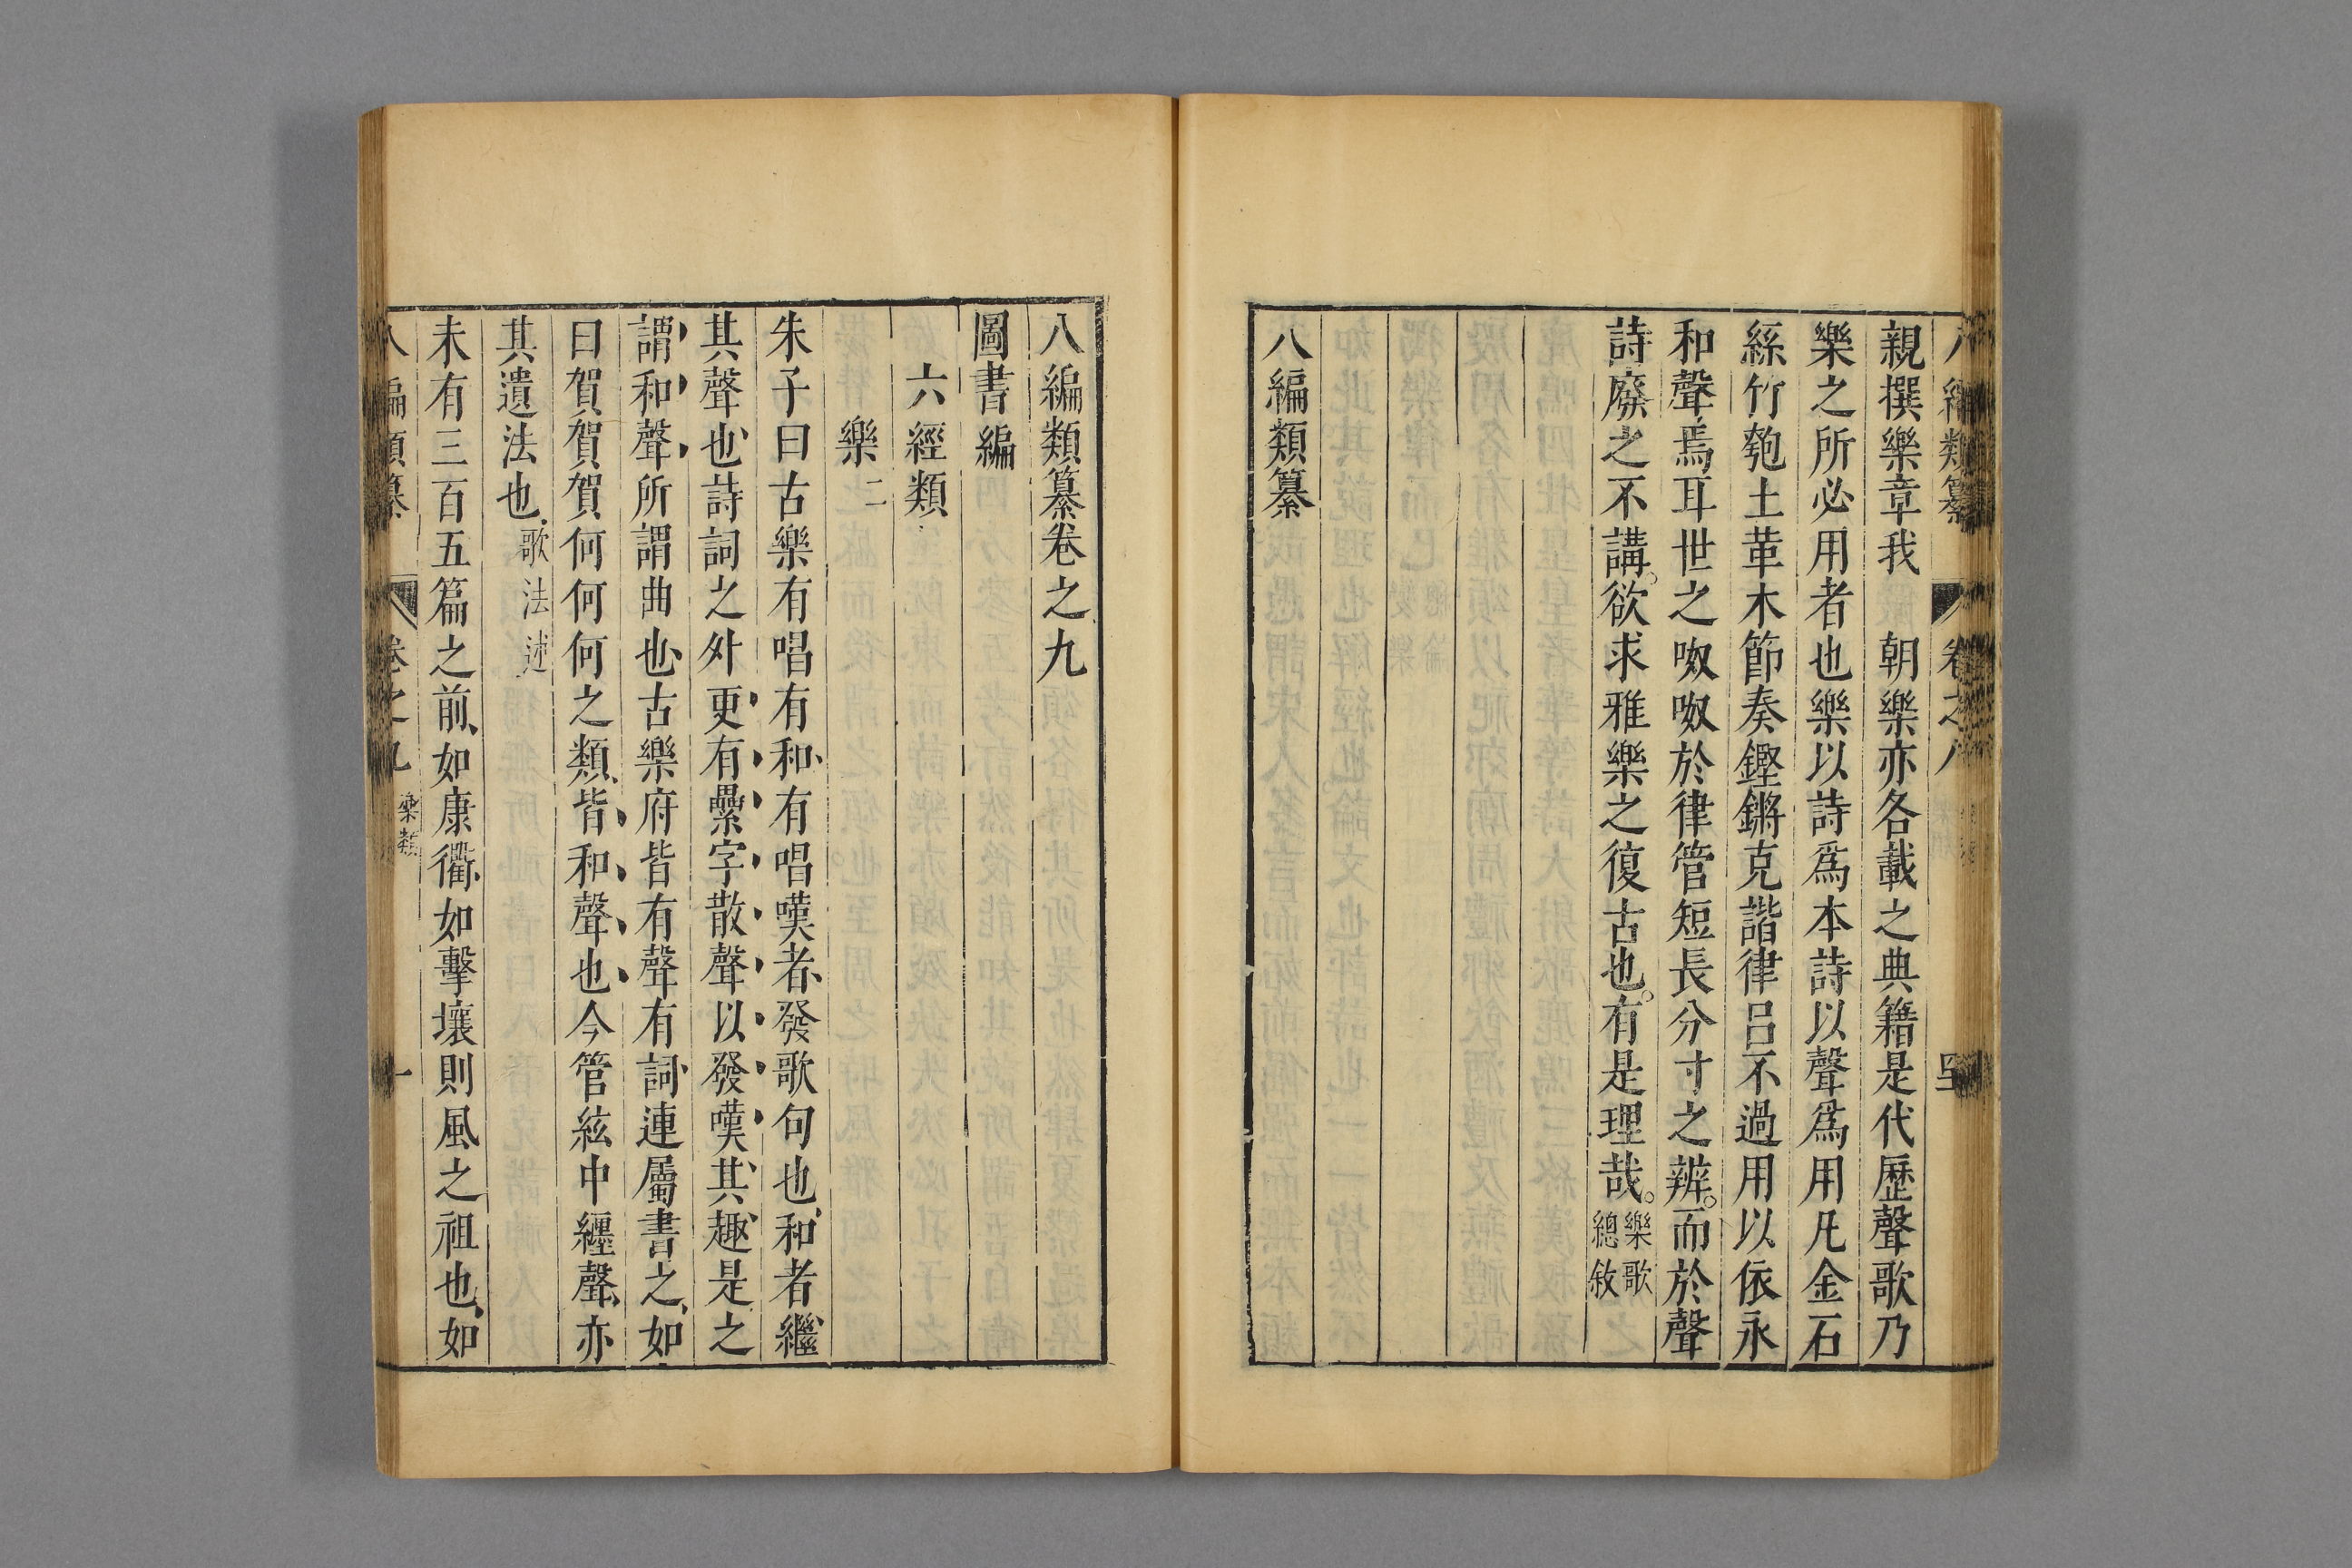 八編類纂 卷之八
親撰樂章我 朝樂亦各載之典籍是代歷聲歌乃
樂之所必用者也樂以詩爲本詩以聲爲用凡金石
絲竹匏土革木節奏鏗鏘克諧律呂不過用以依永
和聲焉耳世之呶呶於律管短長分寸之辨。而於聲
詩廢之不講。欲求雅樂之復古也。有是理哉。樂歌
總敘
八編類纂
八編類纂卷之九
圖書編
六經類
樂二
朱子曰古樂有唱有和、有唱嘆者、發歌句也、和者、繼
其聲也、詩詞之外更有疊字散聲以發嘆其趣、是之
謂和聲所謂曲也、古樂府皆有聲有詞、連屬書之、如
曰賀賀賀何何何之類、皆和聲也今管絃中纏聲、亦
其遺法也、歌法述
未有三百五篇之前、如康衢、如擊壤則風之祖也、如
八編類纂 卷之九 樂類 一